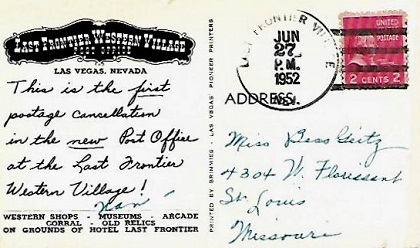 LAST FRONTIER WESTERN VILLAGE
POST OFFICE
LAS VEGAS, NEVADA
This is the first
postage cancellation
in the new Post Office
at the Last Frontier
Western Village!
WESTERN SHOPS - MUSEUMS - ARCADE
CORRAL - OLD RELICS
ON GROUNDS OF HOTEL LAST FRONTIER
PRINTED BY BRIMMIES - LAS VEGAS' PIONEER PRINTERS
LAST FRONTIER VILLAGE
JUN
27
P.M.
1952
NEV.
UNITED
2 CENTS 2
ADDRESS
Miss Bess
4304 W. Florissant
St. Louis
Missouri